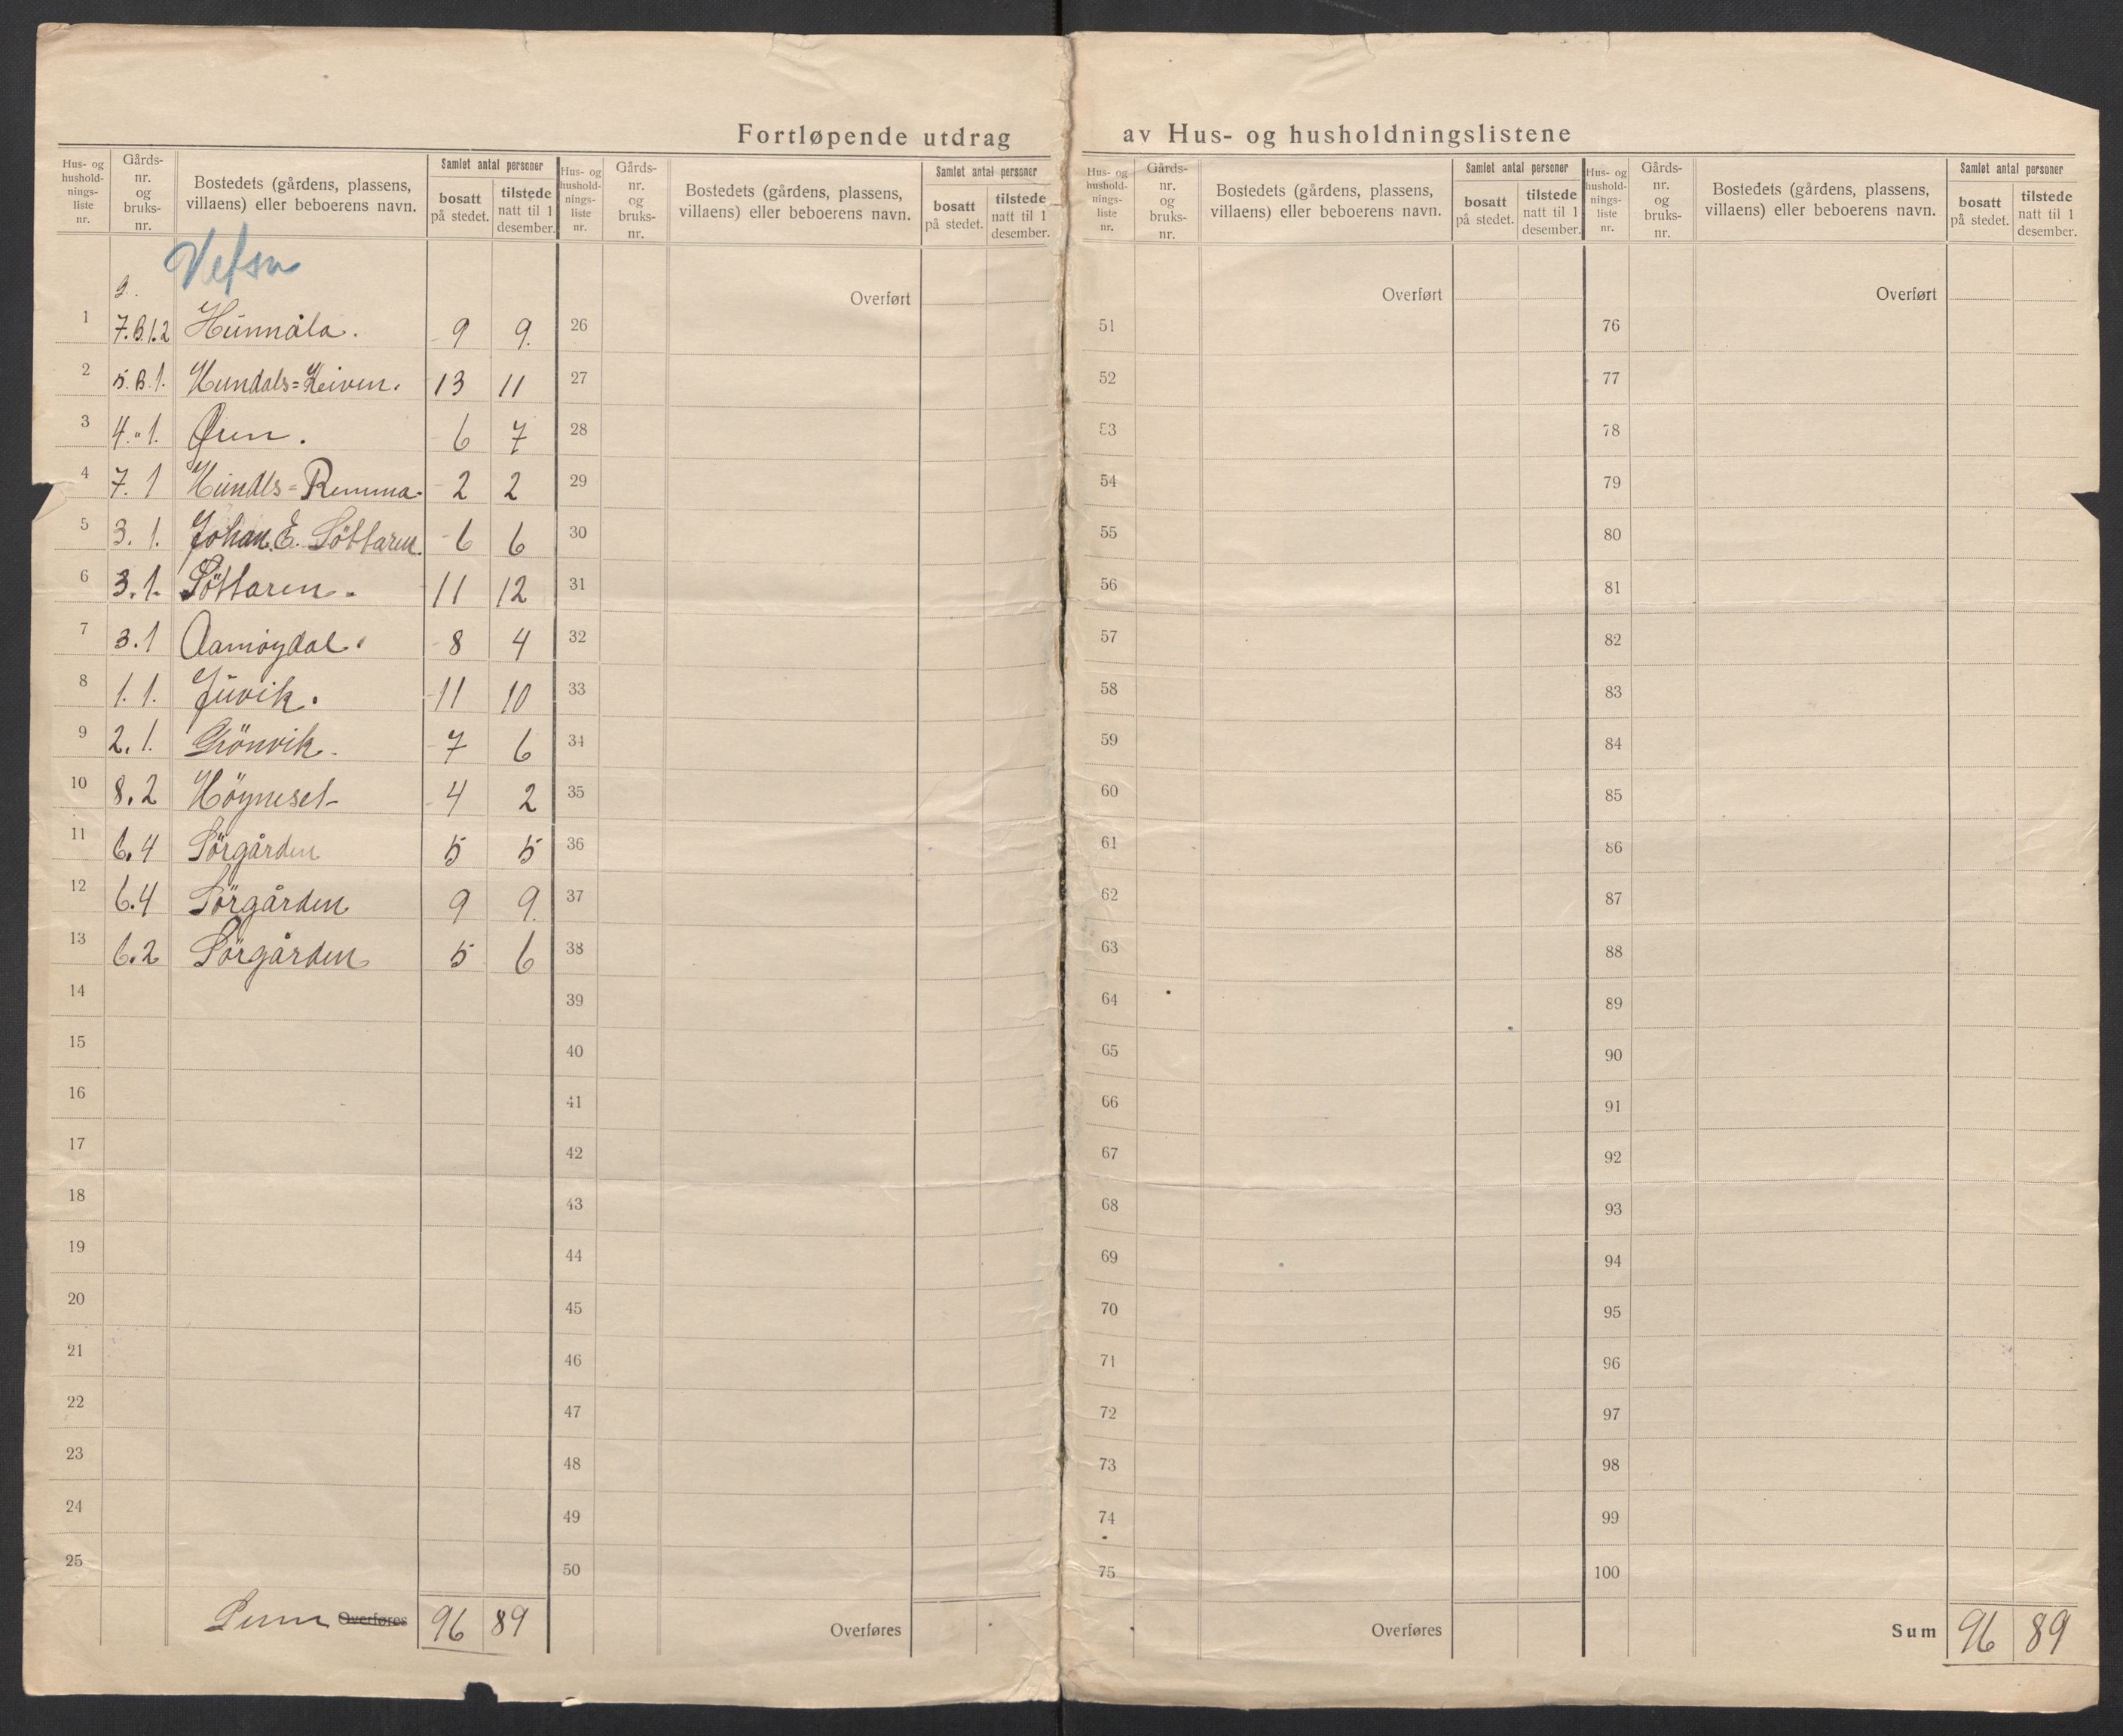 Fortløpende utdrag av Hus- og husholdningslistene
Hus- og hushold-nings-liste nr. Gårds-nr. og bruks-nr. Bostedets (gårdens, plassens, villaens) eller beboerens navn. Samlet antal personer bosatt på stedet. tilstede natt til 1 desember.
Vefsn
g.
1 7.B.1.2 Hunnåla. 9 9.
2 5.B.1. Hundals=Kleiven. 13 11
3 4."1. Øren. 6 7
4 7.1 Hundls=Remma. 2 2
5 3.1. Johan E. Söttaren. 6 6
6 3.1. Söttaren. 11 12
7 3.1 Aamøydal. 8 4
8 1.1. Juvik. 11 10
9 2.1. Grönvik. 7 6
10 8.2 Höyneset 4 2
11 6.4 Sörgården 5 5
12 6.4 Sörgården 9 9.
13 6.2 Sörgården 5 6
14
15
16
17
18
19
20
21
22
23
24
25
Sum Overføres 96 89
Hus- og hushold-nings-liste nr. Gårds-nr. og bruks-nr. Bostedets (gårdens, plassens, villaens) eller beboerens navn. Samlet antal personer bosatt på stedet. tilstede natt til 1 desember.
Overført
26
27
28
29
30
31
32
33
34
35
36
37
38
39
40
41
42
43
44
45
46
47
48
49
50
Overføres
Hus- og hushold-nings-liste nr. Gårds-nr. og bruks-nr. Bostedets (gårdens, plassens, villaens) eller beboerens navn. Samlet antal personer bosatt på stedet. tilstede natt til 1 desember.
Overført
51
52
53
54
55
56
57
58
59
60
61
62
63
64
65
66
67
68
69
70
71
72
73
74
75
Overføres
Hus- og hushold-nings-liste nr. Gårds-nr. og bruks-nr. Bostedets (gårdens, plassens, villaens) eller beboerens navn. Samlet antal personer bosatt på stedet. tilstede natt til 1 desember.
Overført
76
77
78
79
80
81
82
83
84
85
86
87
88
89
90
91
92
93
94
95
96
97
98
99
100
Sum 96 89